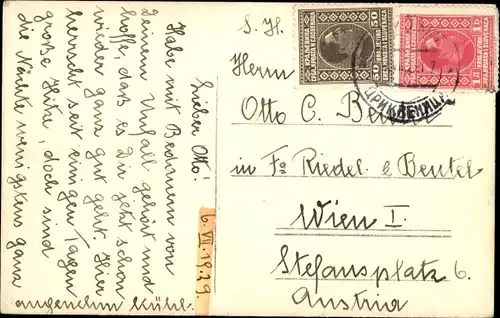 Lieber Otto!
Habe mit Bedauern von
Deinem Unfall gehört und
hoffe, daß es Dir jetzt schon
wieder ganz gut geht. Hier
herrscht seit einigen Tagen
große Hitze, doch sind
die Nächte wenigstens ganz
angenehm kühl.
6. VII. 1929.
S. H.
Herrn
Otto C.
in Fa Riedel & Beutel
Wien I.
Stefansplatz 6.
Austria
50
50
1
1
ЦРИКВЕНИЦА